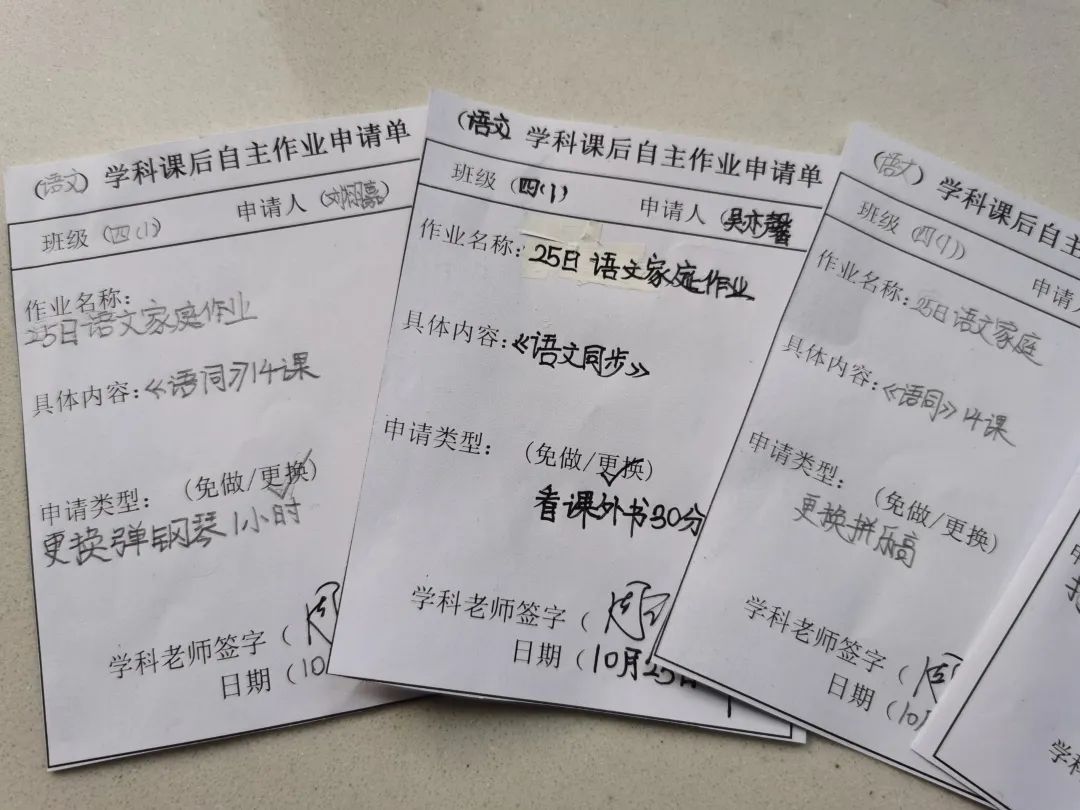 (语文) 学科课后自主作业申请单
班级 (四(1)
申请人
作业名称:
25日语文家庭作业
具体内容:《语词》14课
申请类型: (免做/更换)
更换弹钢琴1小时
学科老师签字 (周
日期 (10
(语文 学科课后自主作业申请单
班级 (四(1)
申请人 (吴亦馨
作业名称: 25日语文家庭作业
具体内容:《语文同步》
申请类型: (免做/更换)
看课外书30分
学科老师签字 (
日期 (10月25日
(语文) 学科课后自主
班级 (四(1)
申请
作业名称: 25日语文家庭
具体内容:《语同》14课
申请类型: (免做/更换)
更换拼乐高
学科老师签字 (周
日期 (10
学科